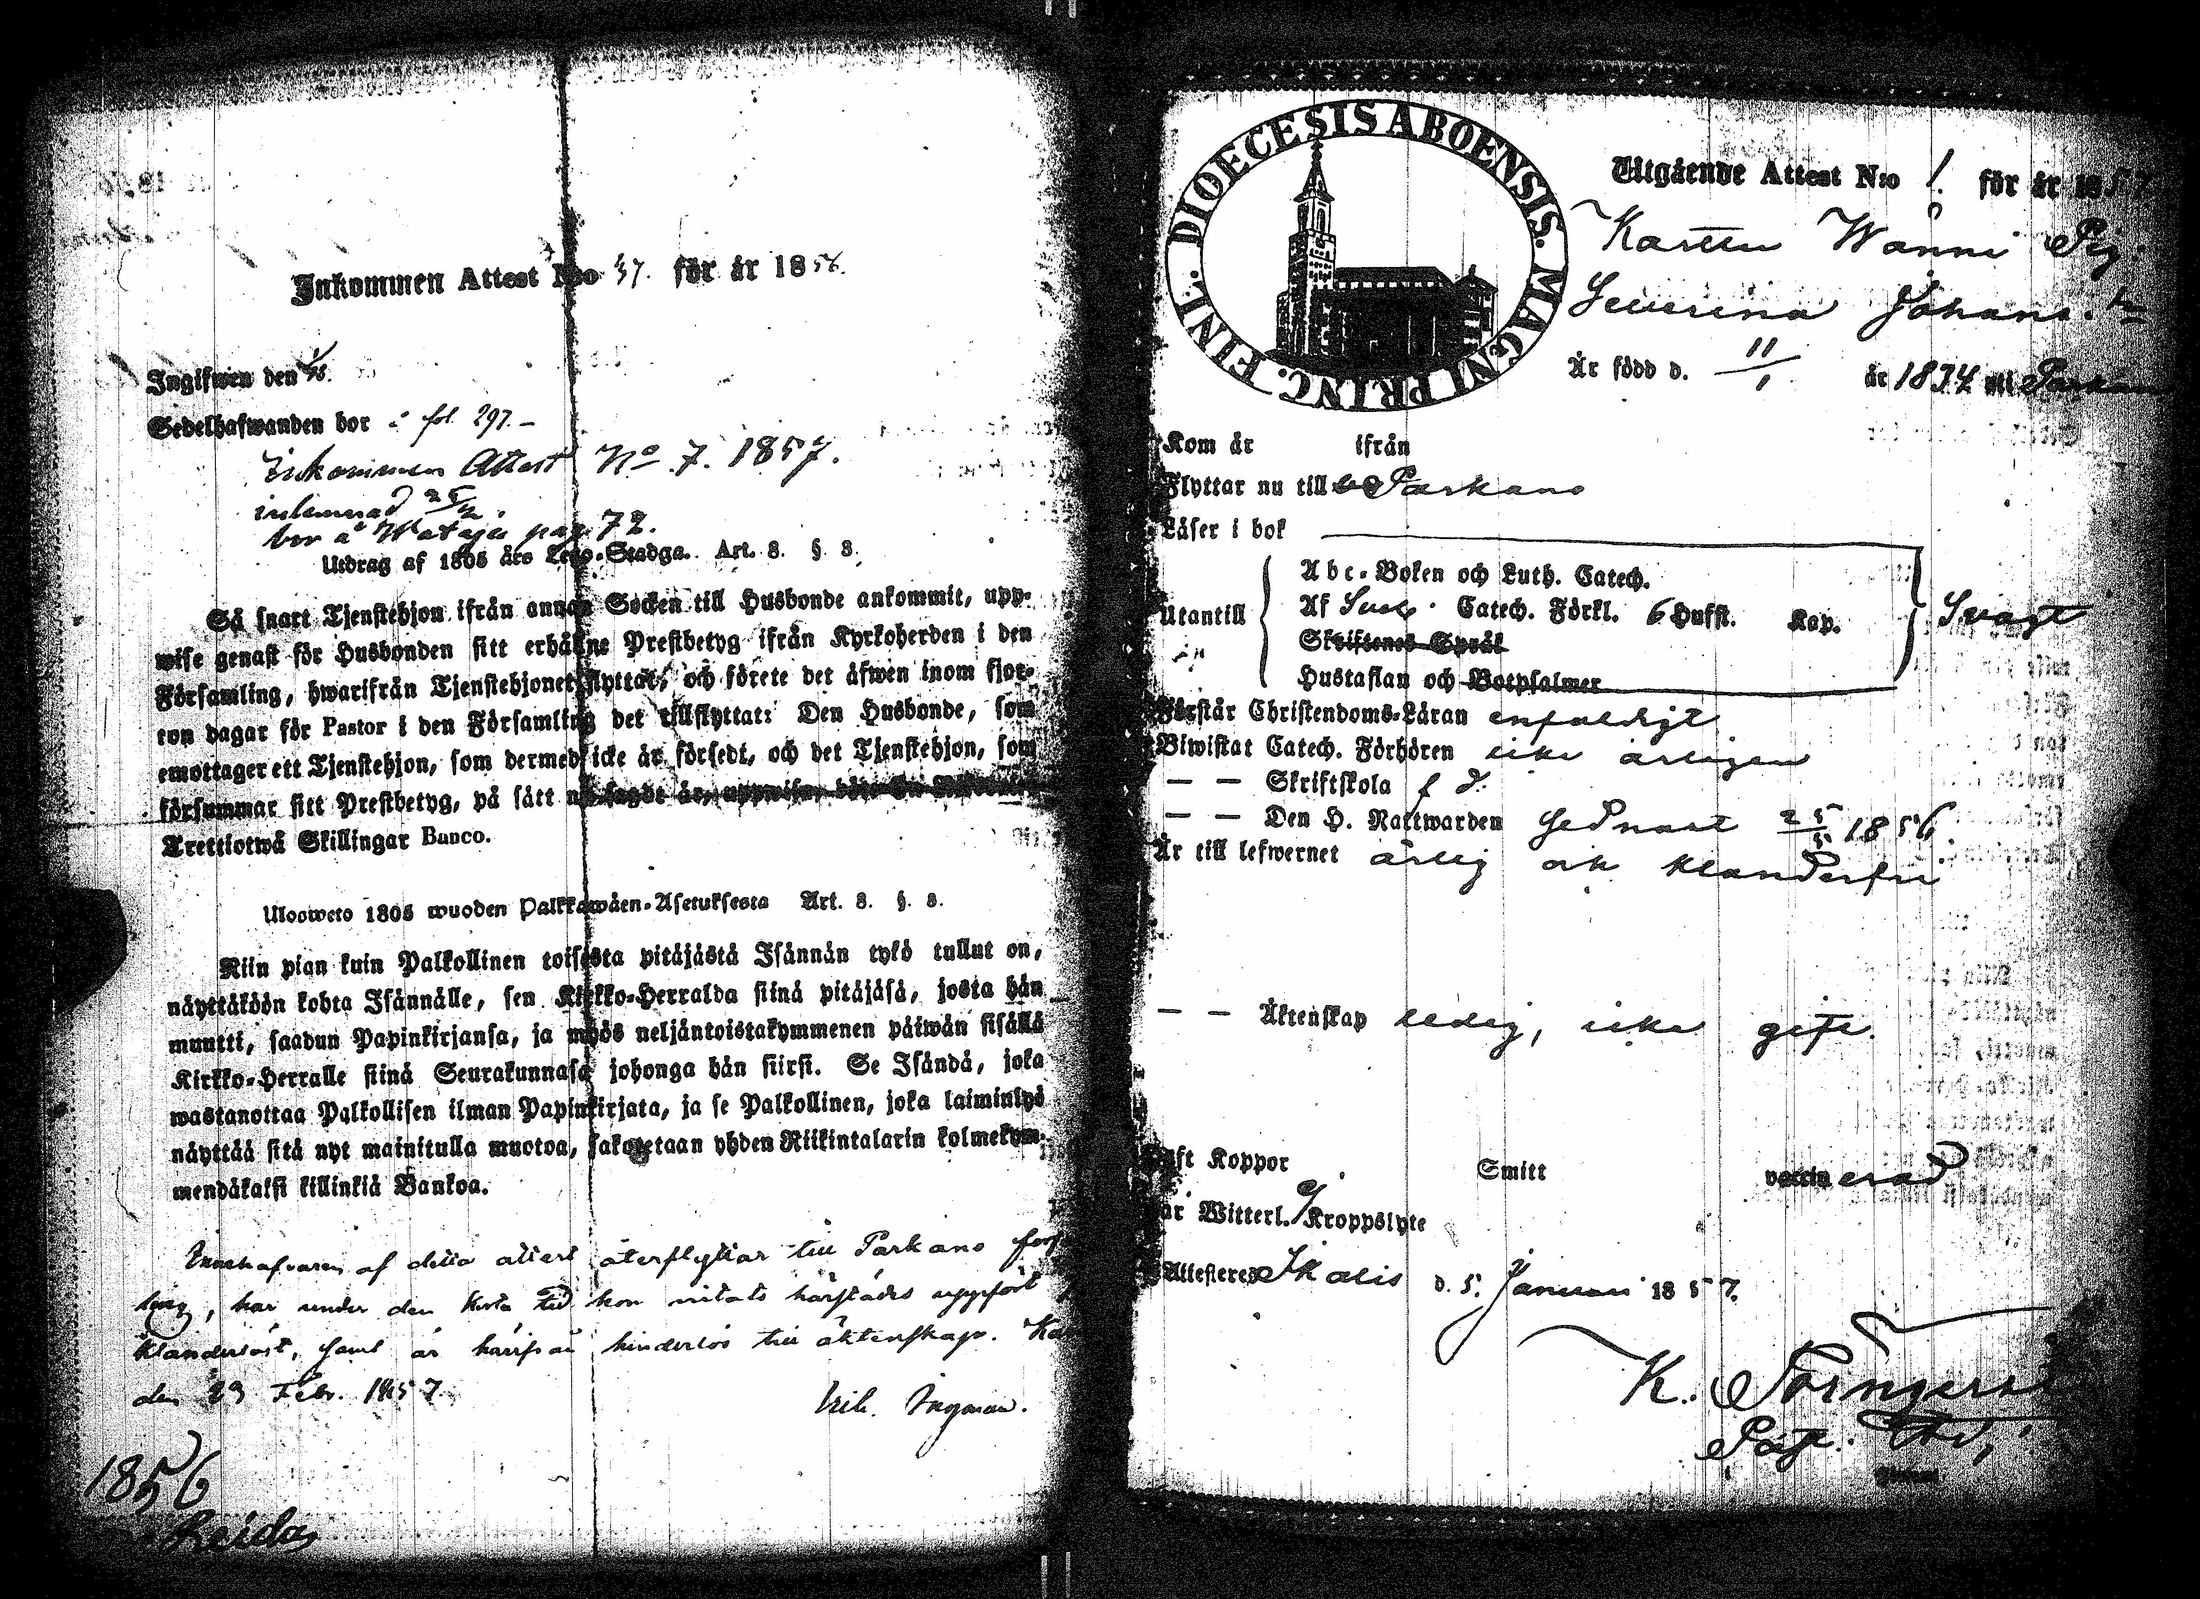 Inkommen Attest N:o 37. för år 1856.
Ingifwen den
Sedelhafwanden bor i fol 297. –
Inkommen Attest No 7. 1857.
inlemnad 25/2.
bor å Wataja pag. 72.
Utdrag af 1805 års Lego-Stadga. Art. 8. §. 3.
Så snart Tjenstehjon ifrån annan Socken till Husbonde ankommit, upp-
wise genast för Husbonden sitt erhållne Prestbetyg ifrån Kyrkoherden i den
Församling, hwarifrån Tjenstehjonet flyttat, och förete det äfwen inom fjor-
ton dagar för Pastor i den Församling det tillflyttat: Den Husbonde, som
emottager ett Tjenstehjon, som dermed icke är försedt, och det Tjenstehjon, som
försummar sitt Prestbetyg, på sätt nu sagdt är, uppwisa, böte En Riksdaler
Trettiotwå Skillingar Banco.
Ulosweto 1805 wuoden Palkkawäen-Asetuksesta Art. 8. §. 3.
Niin pian kuin Palkollinen toisesta pitäjästä Isännän tykö tullut on,
näyttäköön kohta Isännälle, sen Kirkko-Herralda siinä pitäjäsä, josta hän
muutti, saadun Papinkirjansa, ja myös neljäntoistakymmenen päiwän sisällä
Kirkko-Herralle siinä Seurakunnasa johonga hän siirsi. Se Isändä, joka
wastanottaa Palkollisen ilman Papinkirjata, ja se Palkollinen, joka laiminlyö
näyttää sitä nyt mainitulla muotoa, sakotetaan yhden Riikintalarin kolmekym-
mendäkaksi killinkiä Bankoa.
Innehafvaren af detta attest återflyttar till Parkano förs
ling, har under den korta tid hon vistats härstädes uppfört
klanderlöst, samt är härifrån hinderlös till äktenskap. Ka
den 23 Febr. 1857.
Ingman.
1856
DIOECESIS ABOENSIS. MAGNI PRINC. FINL.
Utgående Attest N:o 1. för år 1857
Karttu Wänni Pig.
Severina Johans. dr
Är född d. 11/1 år 1834 uti Parkano
Kom år ifrån
Flyttar nu till Parkano
Läser i bok
Abc-Boken och Luth. Catech.
Utantill Af Catech. Förkl. 6 Hufst. Kap. Svagt
Skriftenes Språk
Hustaflan och Botpsalmer
Förstår Christendoms-Läran enfaldigt
Biwistat Catech. Förhören icke årligen
— — Skriftskola
— — Den H. Nattwarden sednast 25/5 1856
Är till lefwernet ärlig och klanderfri
— — Äktenskap ledig, icke gift.
Haft Koppor Smitt vaccinerad
Har Witterl. Kroppslyte
Attesteres Ikalis d. 5. Januari 1857.
K.
Past.